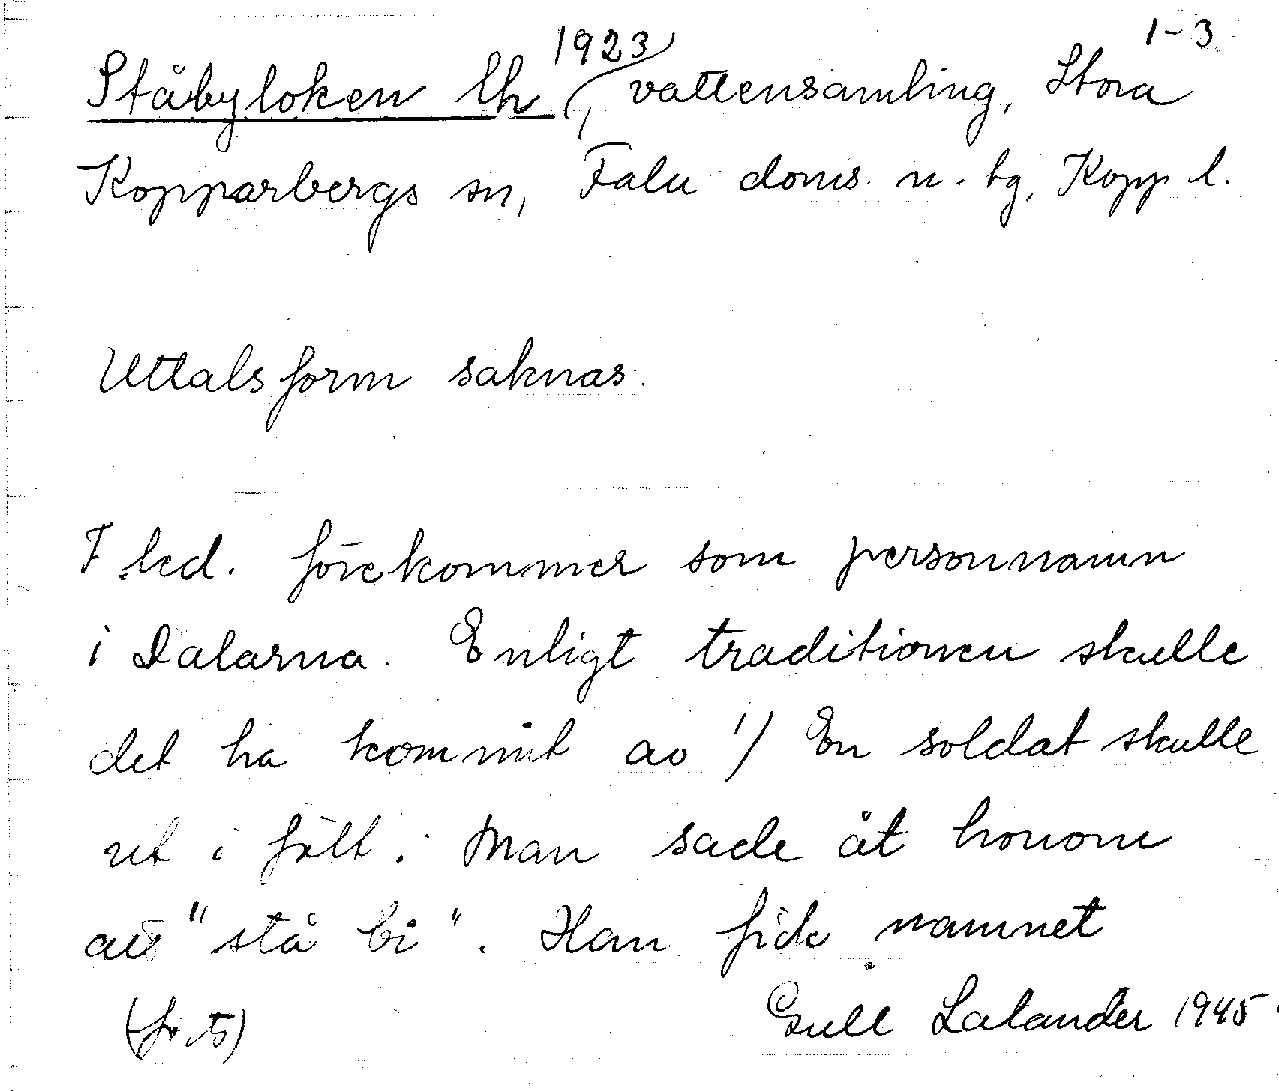 1-3
Ståbyloken Ch 1923, vattensamling, Stora
Kopparbergs sn, Falu doms. n. tg, Kopp l.
Uttalsform saknas.
F. led. förekommer som personnamn
i Dalarna. Enligt traditionen skulle
det ha kommit av 1) En soldat skulle
ut i fält. Man sade åt honom
att "stå bi". Han fick namnet
(forts) Gull Lalander 1945